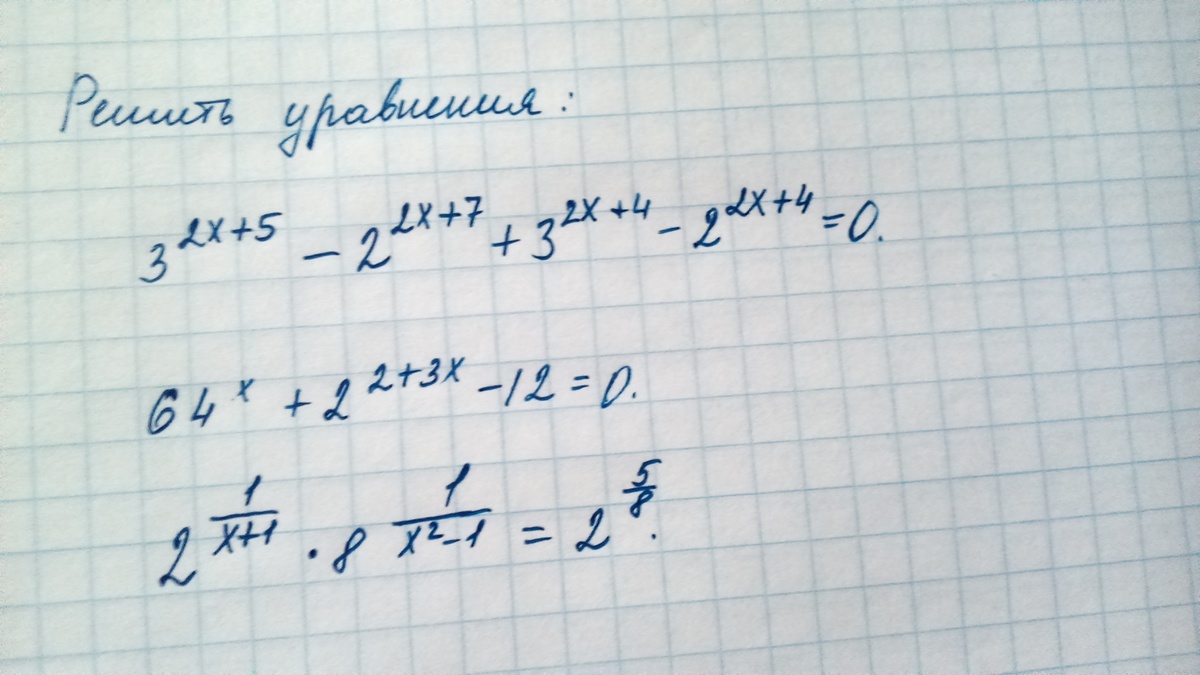 Решить уравнения:
3^{2x+5} - 2^{2x+7} + 3^{2x+4} - 2^{2x+4} = 0.
64^{x} + 2^{2+3x} - 12 = 0.
2^{\frac{1}{x+1}} \cdot 8^{\frac{1}{x^2-1}} = 2^{\frac{5}{8}}.